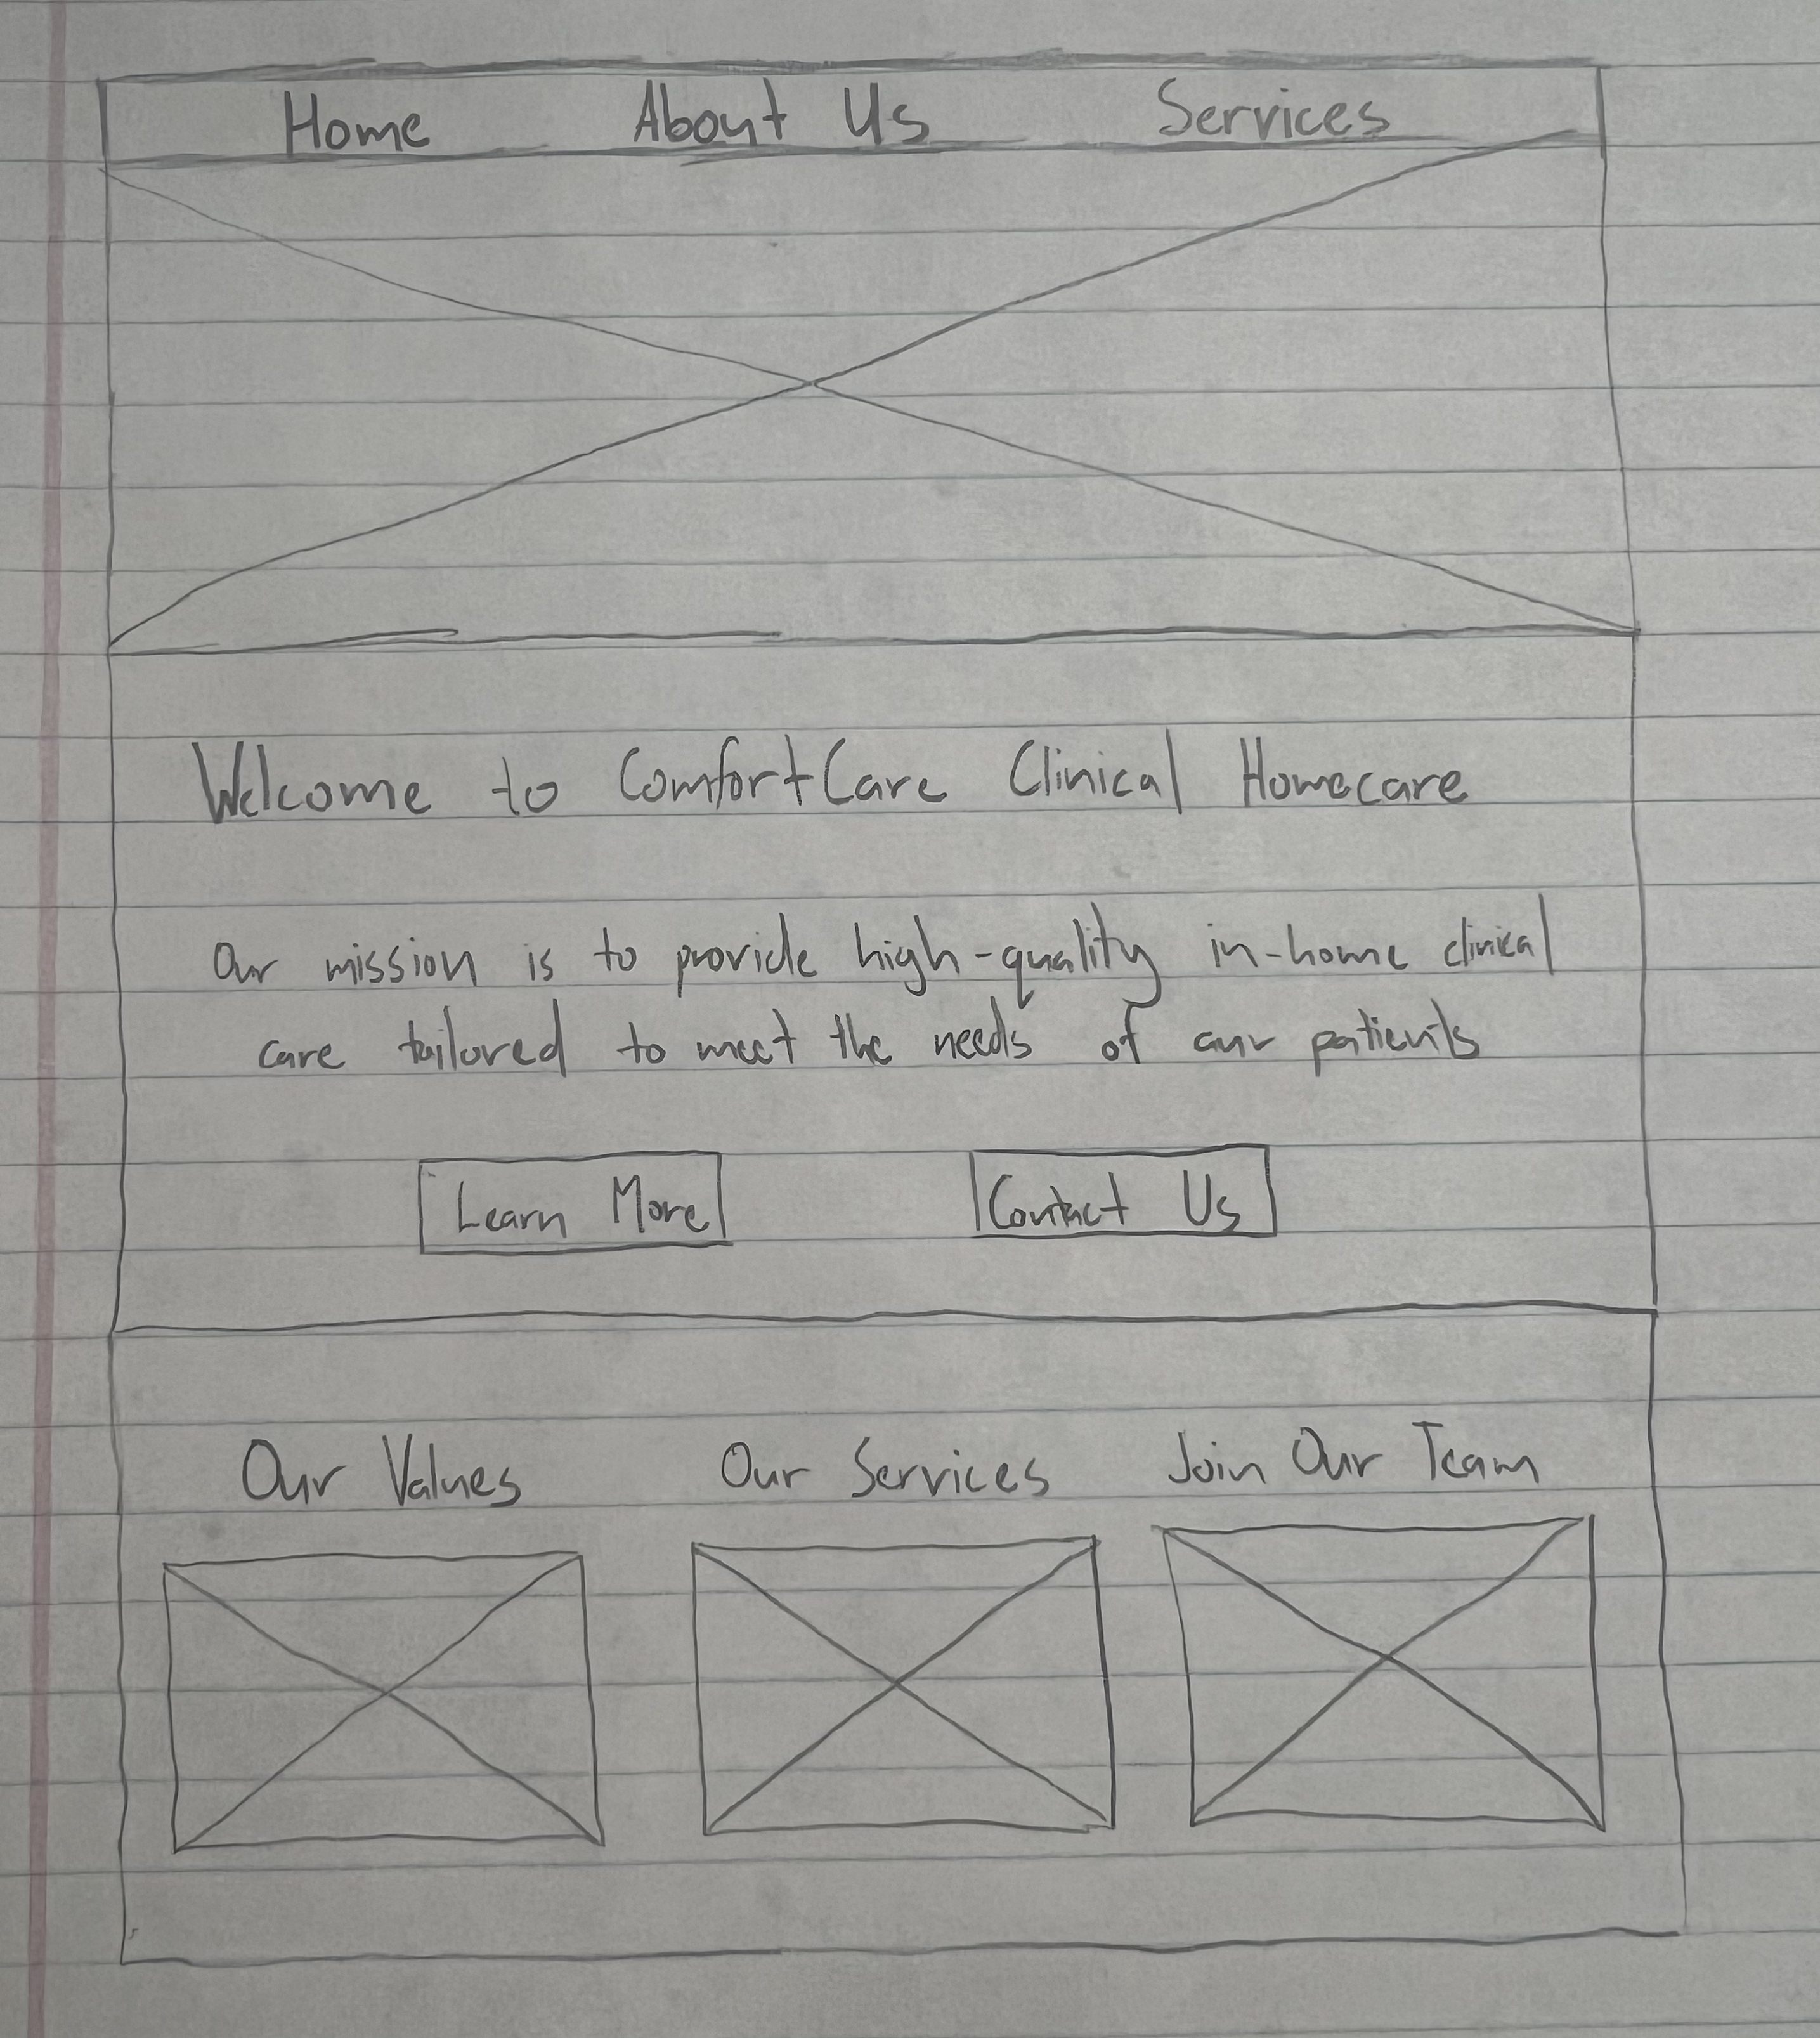 Home About Us Services
Welcome to ComfortCare Clinical Homecare
Our mission is to provide high-quality in-home clinical
care tailored to meet the needs of our patients
Learn More Contact Us
Our Values Our Services Join Our Team